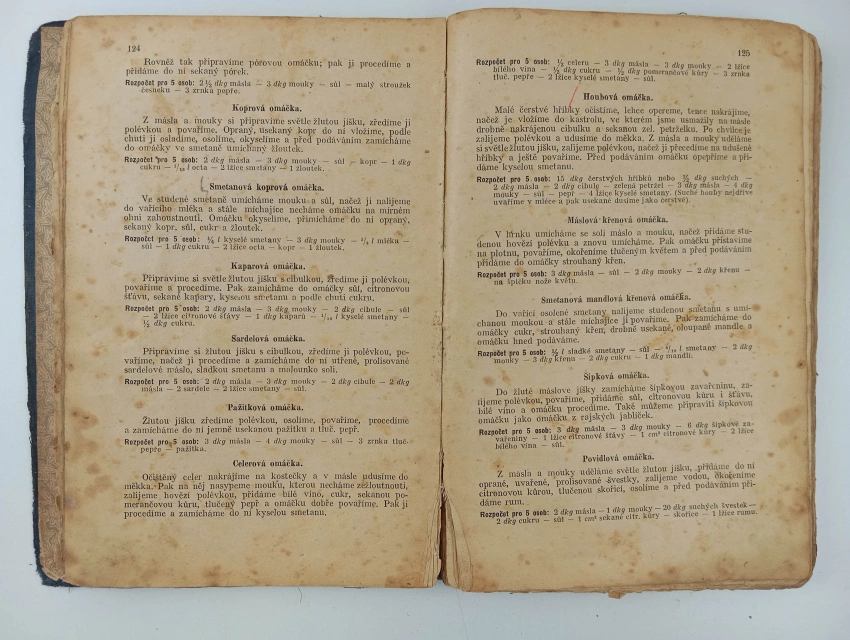 124
Rovněž tak připravíme pórovou omáčku; pak ji procedíme a
přidáme do ní sekaný pórek.
Rozpočet pro 5 osob: 2½ dkg másla — 3 dkg mouky — sůl — malý stroužek
česneku — 3 zrnka pepře.
Koprová omáčka.
Z másla a mouky si připravíme světle žlutou jíšku, zředíme ji
polévkou a povaříme. Opraný, usekaný kopr do ní vložíme, podle
chuti ji osladíme, osolíme, okyselíme a před podáváním zamícháme
do omáčky ve smetaně umíchaný žloutek.
Rozpočet pro 5 osob: 2 dkg másla — 3 dkg mouky — sůl — kopr — 1 dkg
cukru — l octa — 2 lžíce smetany — 1 žloutek.
Smetanová koprová omáčka.
Ve studené smetaně umícháme mouku a sůl, načež ji nalijeme
do vařícího mléka a stále míchajíce necháme omáčku na mírném
ohni zahoustnouti. Omáčku okyselíme, přimícháme do ní opraný,
sekaný kopr, sůl, cukr a žloutek.
Rozpočet pro 5 osob: l kyselé smetany — 3 dkg mouky — l mléka —
sůl — 1 dkg cukru — 2 lžíce octa — kopr — 1 žloutek.
Kaparová omáčka.
Připravíme si světle žlutou jíšku s cibulkou, zředíme ji polévkou,
povaříme a procedíme. Pak zamícháme do omáčky sůl, citronovou
šťávu, sekané kapary, kyselou smetanu a podle chuti cukru.
Rozpočet pro 5 osob: 2 dkg másla — 3 dkg mouky — 2 dkg cibule — sůl
— 2 lžíce citronové šťávy — 1 dkg kaparů — l kyselé smetany —
½ dkg cukru.
Sardelová omáčka.
Připravíme si žlutou jíšku s cibulkou, zředíme ji polévkou, po-
vaříme, načež ji procedíme a zamícháme do ní utřené, prolisované
sardelové máslo, sladkou smetanu a malounko soli.
Rozpočet pro 5 osob: 2 dkg másla — 3 dkg mouky — 2 dkg cibule — 2 dkg
másla — 2 sardele — 2 lžíce smetany — sůl.
Pažitková omáčka.
Žlutou jíšku zředíme polévkou, osolíme, povaříme, procedíme
a zamícháme do ní jemně usekanou pažitku a tluč. pepř.
Rozpočet pro 5 osob: 3 dkg másla — 4 dkg mouky — sůl — 3 zrnka tluč.
pepře — pažitka.
Celerová omáčka.
Očištěný celer nakrájíme na kostečky a v másle udusíme do
měkka. Pak na něj nasypeme mouku, kterou necháme zežloutnouti,
zalijeme hovězí polévkou, přidáme bílé víno, cukr, sekanou po-
merančovou kůru, tlučený pepř a omáčku dobře povaříme. Pak ji
procedíme a zamícháme do ní kyselou smetanu.
125
Rozpočet pro 5 osob: ½ celeru — 3 dkg másla — 3 dkg mouky — 2 lžíce
bílého vína — ½ dkg cukru — ½ dkg pomerančové kůry — 3 zrnka
tluč. pepře — 2 lžíce kyselé smetany — sůl.
Houbová omáčka.
Malé čerstvé hříbky očistíme, lehce opereme, tence nakrájíme,
načež je vložíme do kastrolu, ve kterém jsme usmažily na másle
drobně nakrájenou cibulku a sekanou zel. petrželku. Po chvilce je
zalijeme polévkou a udusíme do měkka. Z másla a mouky uděláme
si světle žlutou jíšku, zalijeme polévkou, načež ji přecedíme na udušené
hříbky a ještě povaříme. Před podáváním omáčku opepříme a při-
dáme kyselou smetanu.
Rozpočet pro 5 osob: 15 dkg čerstvých hříbků nebo dkg suchých —
2 dkg másla — 2 dkg cibule — zelená petržel — 3 dkg másla — 4 dkg
mouky — sůl — pepř — 4 lžíce kyselé smetany. (Suché houby nejdříve
uvaříme v mléce a pak usekané dusíme jako čerstvé).
Máslová křenová omáčka.
V hrnku umícháme se solí máslo a mouku, načež přidáme stu-
denou hovězí polévku a znovu umícháme. Pak omáčku přistavíme
na plotnu, povaříme, okořeníme tlučeným květem a před podáváním
přidáme do omáčky strouhaný křen.
Rozpočet pro 5 osob: 3 dkg másla — sůl — 2 dkg mouky — 2 dkg křenu —
na špičku nože květu.
Smetanová mandlová křenová omáčka.
Do vařící osolené smetany nalijeme studenou smetanu s umí-
chanou moukou a stále míchajíce ji povaříme. Pak zamícháme do
omáčky cukr, strouhaný křen, drobně usekané, oloupané mandle a
omáčku hned podáváme.
Rozpočet pro 5 osob: l sladké smetany — sůl — l smetany — 2 dkg
mouky — 3 dkg křenu — 2 dkg cukru — 1 dkg mandlí.
Šípková omáčka.
Do žluté máslové jíšky zamícháme šípkovou zavařeninu, za-
lijeme polévkou, povaříme, přidáme sůl, citronovou kůru i šťávu,
bílé víno a omáčku procedíme. Také můžeme připraviti šípkovou
omáčku jako omáčku z rajských jablíček.
Rozpočet pro 5 osob: 3 dkg másla — 3 dkg mouky — 6 dkg šípkové za-
vařeniny — 1 lžíce citronové šťávy — 1 cm² citronové kůry — 2 lžíce
bílého vína — sůl.
Povidlová omáčka.
Z másla a mouky uděláme světle žlutou jíšku, přidáme do ní
oprané, uvařené, prolisované švestky, zalijeme vodou, okořeníme
citronovou kůrou, tlučenou skořicí, osolíme a před podáváním při-
dáme rum.
Rozpočet pro 5 osob: 2 dkg másla — 1 dkg mouky — 20 dkg suchých švestek —
2 dkg cukru — sůl — 1 cm² sekané citr. kůry — skořice — 1 lžíce rumu.